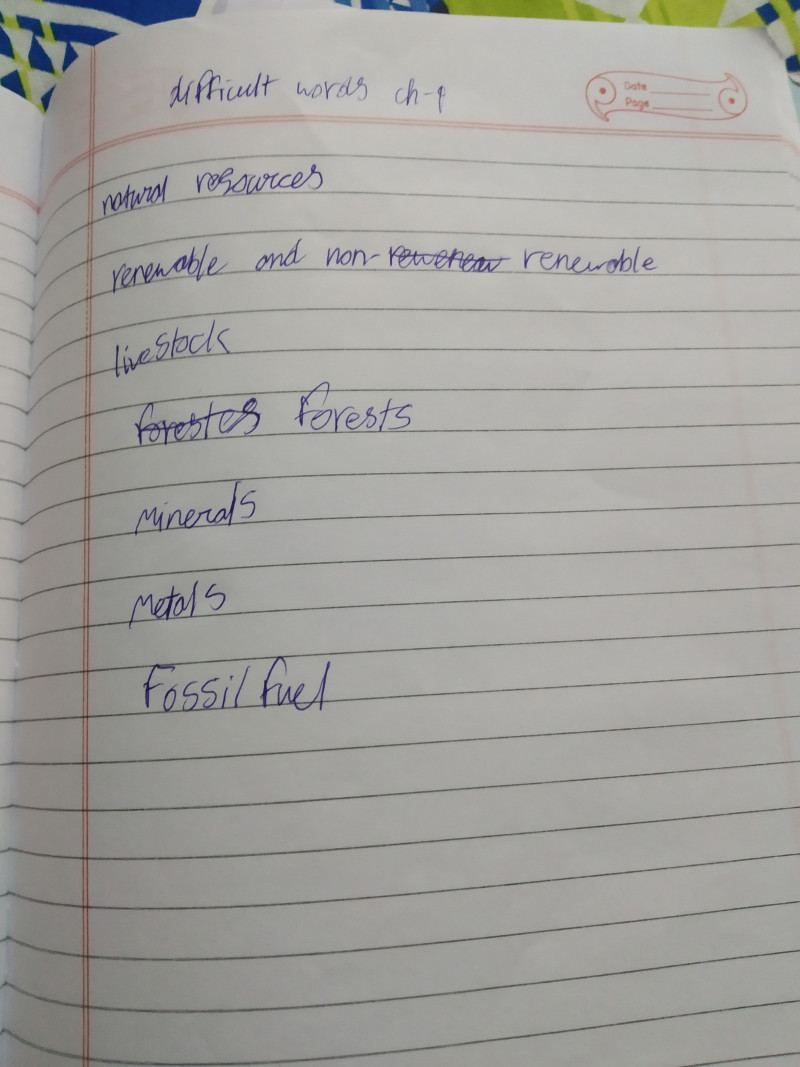 difficult words ch-9
Date
Page
natural resources
renewable and non- renewable
livestock
forests
Minerals
Metals
Fossil fuel